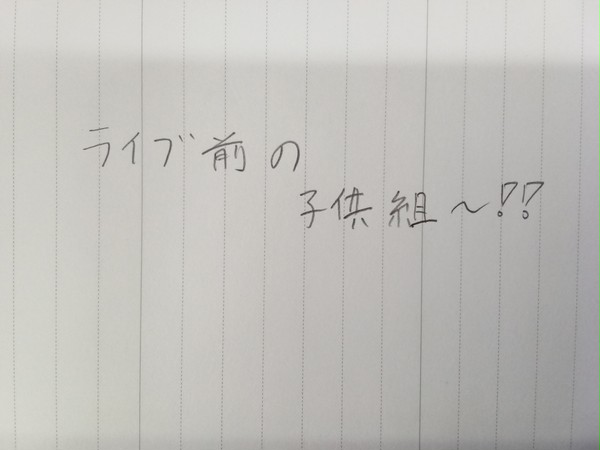 ライブ前の
子供組〜!?